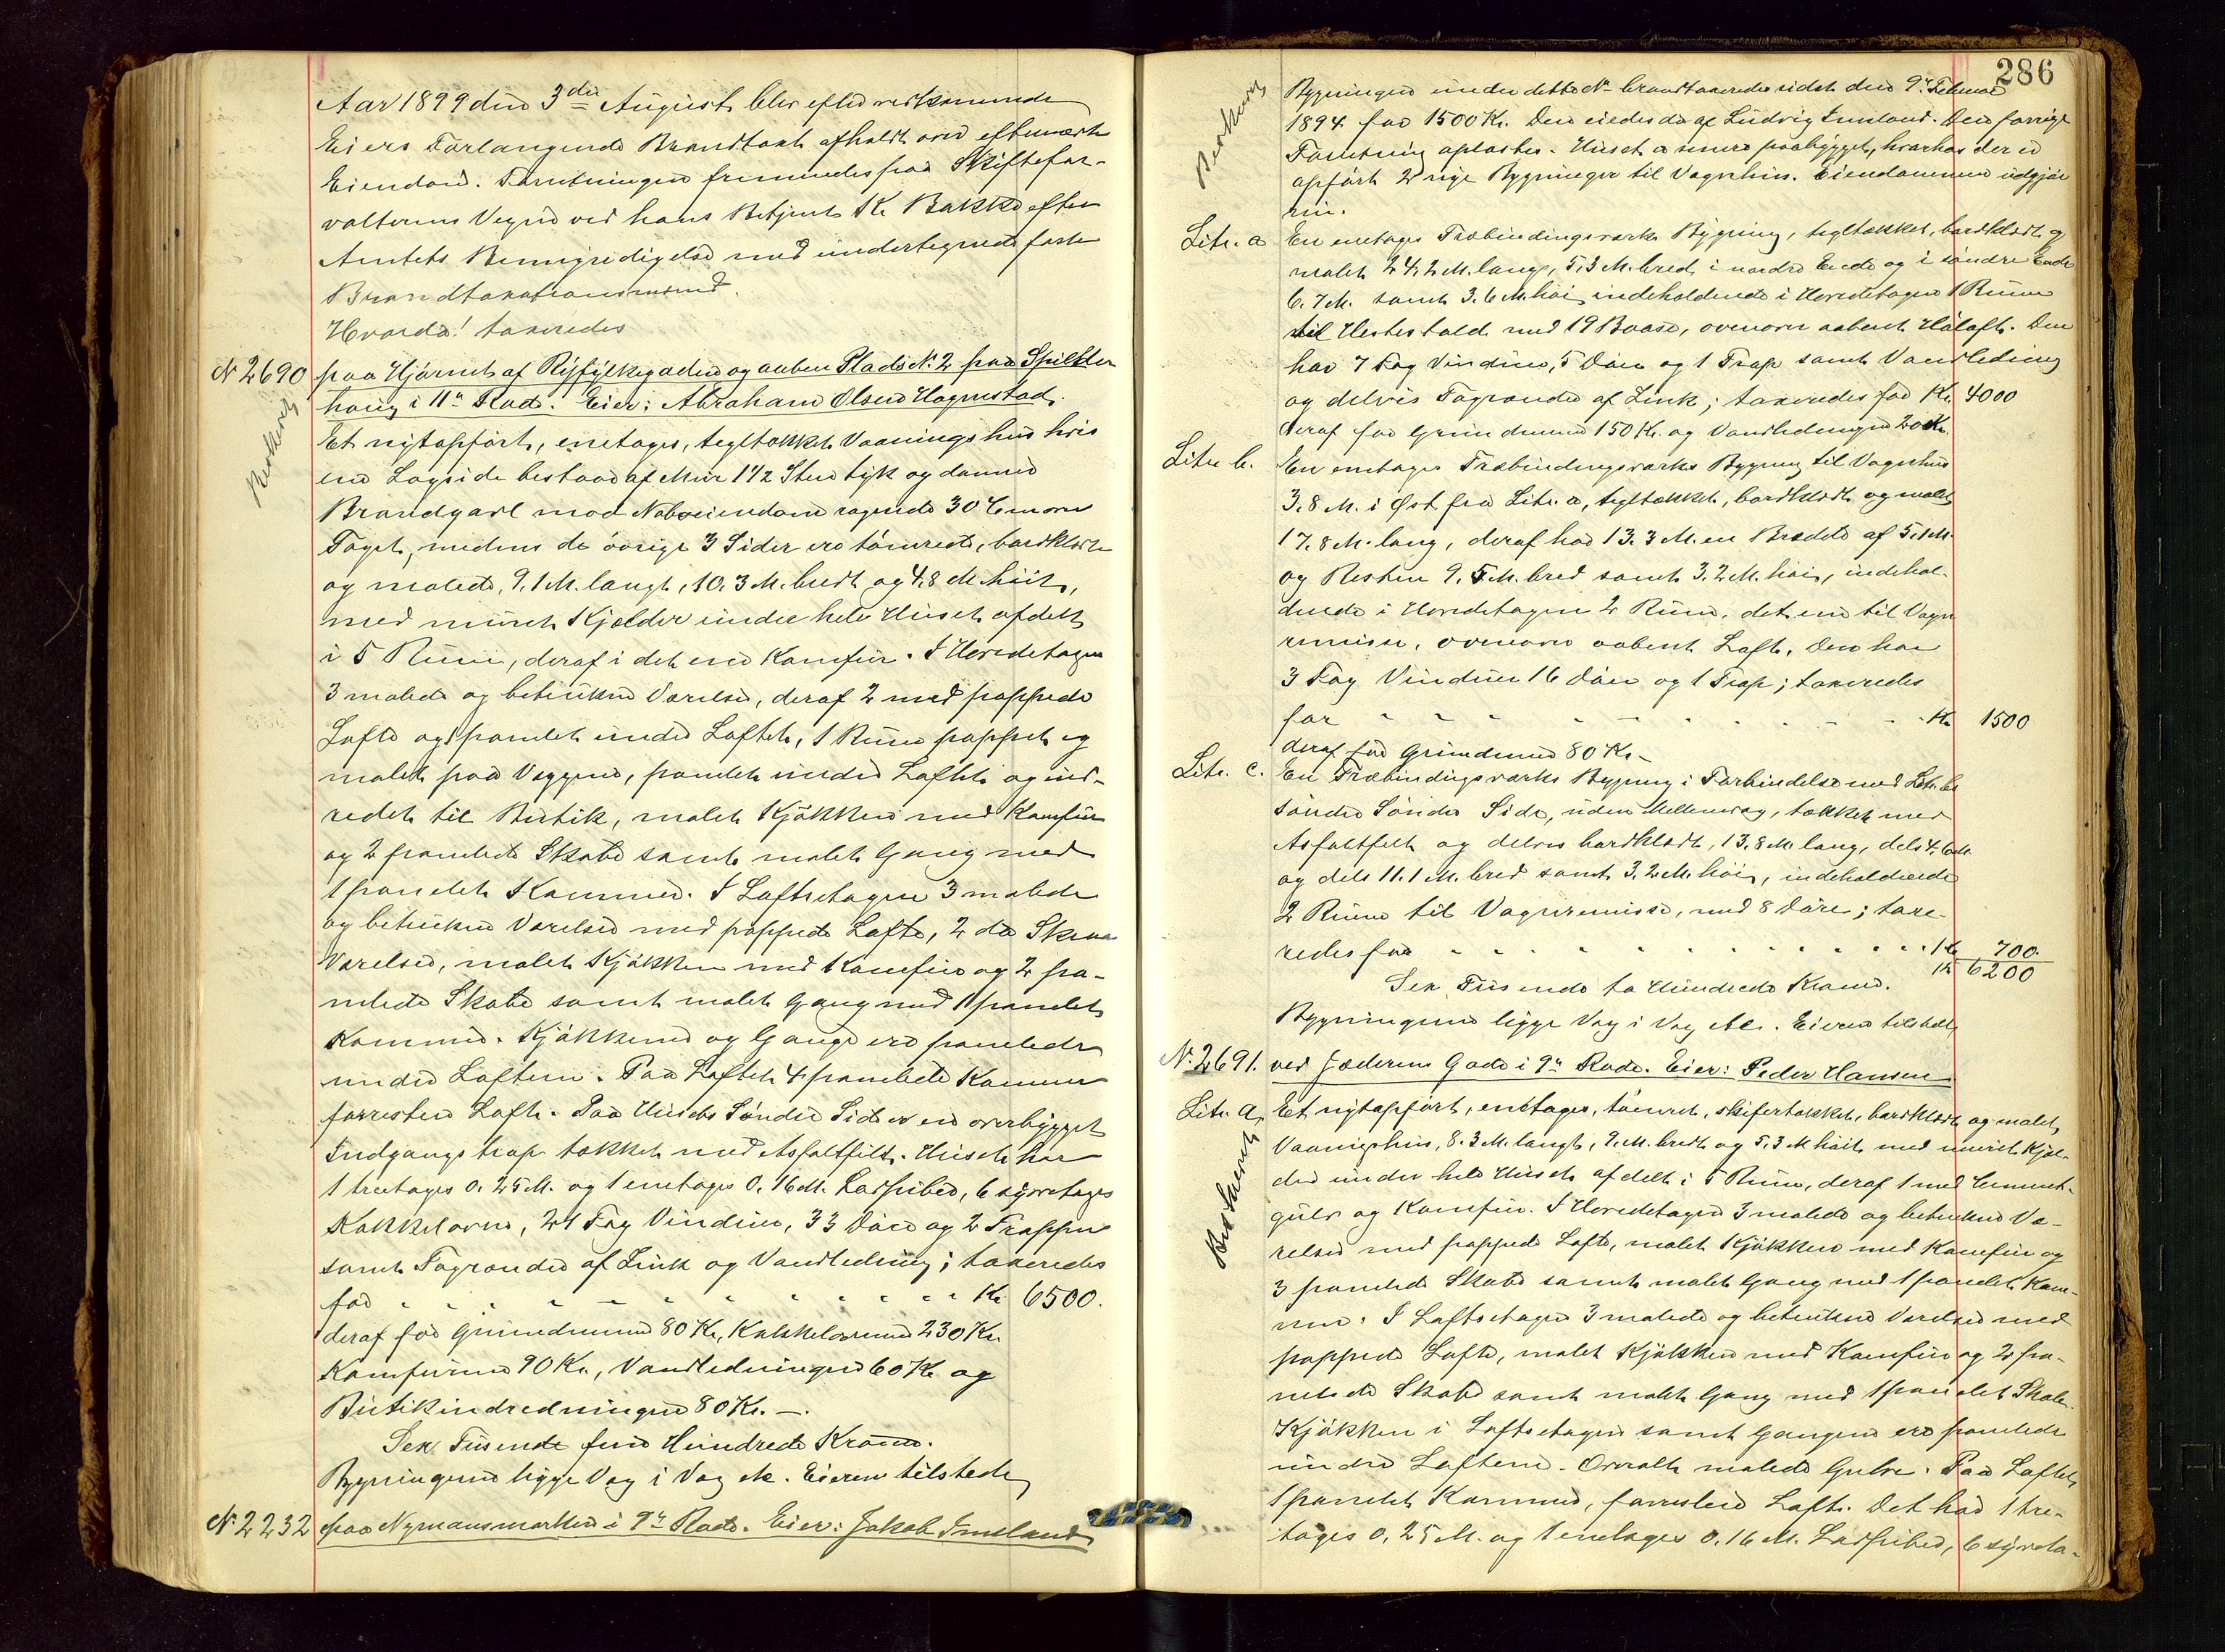 Aar 1899 den 3die August blev efter vedkommende
Eiers Forlangende Brandtaxt afholdt over efternævnte
Eiendom. Forretningen fremmedes paa Skiftefor-
valterens Vegne ved hans Betjent K. Bakke efter
Amtets Bemyndigelse med undertegnede faste
Brandtaxationsmænd.
Hvorda! taxeredes
N 2690 paa Hjørnet af Ryfylkegaden og aaben Plads N. 2 paa Spilder
haug i 11te Rode. Eier: Abraham Olsen Hognestad.
Et nytopført, enetages, tegltækket Vaaningshus hvis
ene Langside bestaar af Mur 1 1/2 Sten tyk og danner
Brandgavl mod Naboeiendom ragende 30 Cm over
Taget, medens de øvrige 3 Sider ere tømrede, bordklædte
og malede, 9,1 M. langt, 10,3 M. bredt og 4,8 M. høit,
med muret Kjælder under hele Huset afdelt
i 5 Rum, deraf i det ene Komfur. I 1ste Etagen
3 malede og betrukne Værelser, deraf 2 med pappede
Lofte og 1 panelet under Loftet, 1 Rum pappet og
malet paa Væggene, panelet under Loftet og ind-
redet til Butik, malet Kjøkken med Komfur
og 2 panelede Skabe samt malet Gang med
1 panelet Kammer. I Loftsetagen 3 malede
og betrukne Værelser med pappede Lofte, 2 do Skraa
Værelser, malet Kjøkken med Komfur og 2 pa-
nelede Skabe samt malet Gang med 1 panelet
Kammer. Kjøkkener og Gange ere panelede
under Loftene. Paa Loftet 4 panelede Kammer
forresten Loft. Paa Husets Søndre Side er en overbygget
Indgangstrap tækket med Asfaltfilt. Huset har
1 treetages 0,25 M. og 1 enetages 0,16 M. Ladpiber, 6 syvetages
Kakkelovne, 24 Fag Vinduer, 33 Døre og 2 Trapper
samt Tagrender af Zink og Vandledning; taxeredes
for - - - - - - - - - - Kr. 6500.
deraf for Grundmuren 80 Kr., Kakkelovnene 230 Kr.
Komfurene 90 Kr., Vandledningen 60 Kr. og
Butikindredningen 80 Kr. -.
Sex Tusende fem Hundrede Kroner.
Bygningerne ligge Væg i Væg etc. Eieren tilstede
N 2232 paa Nymansmarken i 9de Rode. Eier: Jakob Imsland
286
Bygningen under dette No brandtaxeredes sidst den 9de Februar
1894 for 1500 Kr. Den eiedes da af Ludvig Imsland. Den forrige
Forretning oplæstes. Huset er senere paabygget, hvorhos der er
opført 2 nye Bygninger til Vognhus. Eiendommen udgjør
nu.
Litr. a En enetages Træbindingsværks Bygning, tegltækket, bordklædt og
malet 24,2 M. lang, 5,3 M. bred i nordre Ende og i søndre Ende
6,7 M. samt 3,6 M. høi indeholdende i 1ste Etagen 1 Rum
til Hestestald med 19 Baase, ovenover aabent Høloft. Den
har 7 Fag Vinduer, 5 Døre og 1 Trap samt Vandledning
og delvis Tagrender af Zink; taxeredes for Kr. 4000
deraf for Grundmuren 150 Kr. og Vandledningen 20 Kr.
Litr b. En enetages Træbindingsværks Bygning til Vognhus
3,8 M. i Øst fra Litr. a, tegltækket, bordklædt og malet
17,8 M. lang, deraf har 13,3 M. en Bredde af 5,1 M.
og Resten 9,5 M. bred samt 3,2 M. høi, indehol-
dende i 1ste Etagen 2 Rum, det ene til Vogn
remisse, ovenover aabent Loft. Den har
3 Fag Vinduer 16 Døre og 1 Trap; taxeredes
for - - - - - - - - - - Kr. 1500
deraf for Grundmuren 80 Kr. -
Litr. c. En Træbindingsværks Bygning i Forbindelse med Litr. b's
søndre Side, uden Mellemvæg, tækket med
Asfaltfilt og delvis bordklædt, 13,8 M. lang, dels 4,6 M.
og dels 11,1 M. bred samt 3,2 M. høi, indeholdende
2 Rum til Vognremisse, med 8 Døre; taxe-
redes for - - - - - - - - - - Kr. 700.
Kr. 6200
Sex Tusende to Hundrede Kroner.
Bygningerne ligge Væg i Væg etc. Eieren tilstede
N. 2691. ved Jæderens Gade i 9de Rode. Eier: Peder Hansen
Litr. a, Et nytopført, enetages, tømret, skifertækket, bordklædt og malet
Vaaningshus, 8,3 M. langt, 9, M. bredt og 5,3 M høit med muret Kjæl-
der under hele Huset afdelt i 5 Rum, deraf 1 med Cement-
gulv og Komfur. I 1ste Etagen 3 malede og betrukne Væ-
relser med pappede Lofte, malet Kjøkken med Komfur og
3 panelede Skabe samt malet Gang med 1 panelet Kam-
mer. I Loftsetagen 3 malede og betrukne Værelser med
pappede Lofte, malet Kjøkken med Komfur og 2 pa-
nelede Skabe samt malet Gang med 1 panelet Skab.
Kjøkken i Loftsetagen samt Gangen ere panelede
under Loftene. Overalt malede Gulve. Paa Loftet
1 panelet Kammer, forresten Loft. Det har 1 tre-
tages 0,25 M. og 1 enetages 0,16 M. Ladpiber, 6 syveta-